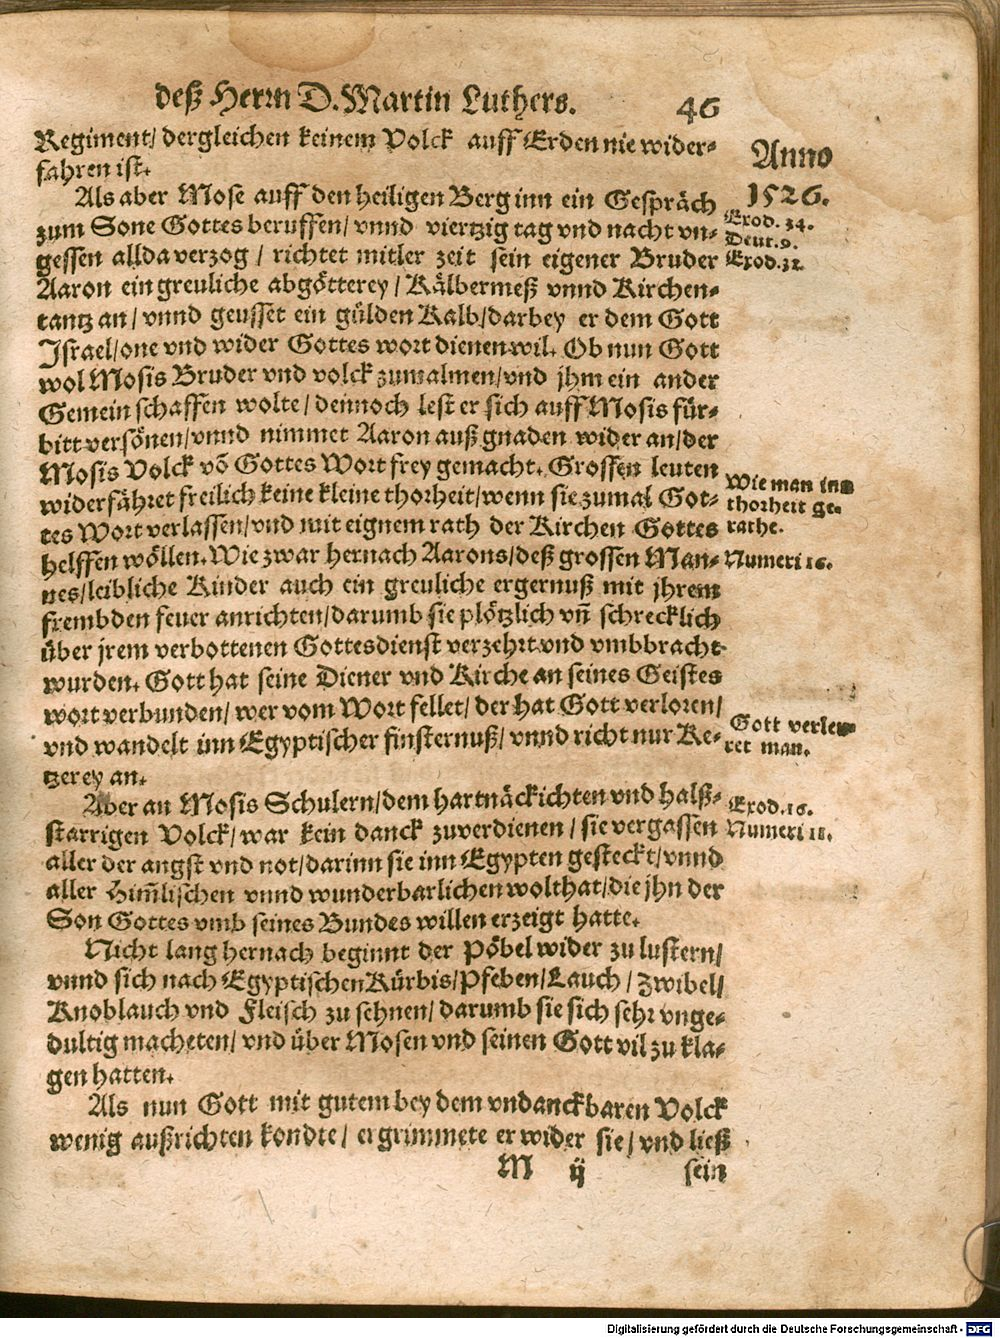 deß Herrn D. Martin Luthers. 46
Regiment/ dergleichen keinem Volck auff Erden nie wider-
fahren ist.
Anno
1526.
Als aber Mose auff den heiligen Berg inn ein Gespräch
zum Sone Gottes beruffen/ vnnd viertzig tag vnd nacht vn-
gessen allda verzog / richtet mitler zeit sein eigener Bruder
Exod. 34.
Deut. 9.
Exod. 32.
Aaron ein greuliche abgötterey / Kälbermeß vnnd Kirchen-
tantz an/ vnnd geusset ein gülden Kalb/ darbey er dem Gott
Israel/ one vnd wider Gottes wort dienen wil. Ob nun Gott
wol Mosis Bruder vnd volck zumalmen/ vnd jhm ein ander
Gemein schaffen wolte/ dennoch lest er sich auff Mosis für-
bitt versönen/ vnnd nimmet Aaron auß gnaden wider an/ der
Mosis Volck võ Gottes Wort frey gemacht. Grossen leuten
widerfähret freilich keine kleine thorheit/ wenn sie zumal Got-
tes Wort verlassen/ vnd mit eignem rath der Kirchen Gottes
Wie man inn
thorheit ge-
rathe.
helffen wöllen. Wie zwar hernach Aarons/ deß grossen Man-
Numeri 16.
nes/ leibliche Kinder auch ein greuliche ergernuß mit jhrem
frembden feuer anrichten/ darumb sie plötzlich vñ schrecklich
über jrem verbottenen Gottesdienst verzehrt vnd vmbbracht
wurden. Gott hat seine Diener vnd Kirche an seines Geistes
wort verbunden/ wer vom Wort fellet/ der hat Gott verloren/
vnd wandelt inn Egyptischer finsternuß/ vnnd richt nur Ke-
Gott verleu-
ret man.
tzerey an.
Aber an Mosis Schulern/ dem hartnäckichten vnd halß-
starrigen Volck/ war kein danck zuverdienen / sie vergassen
Exod. 16.
Numeri 11.
aller der angst vnd not/ darinn sie inn Egypten gesteckt/ vnnd
aller Him̃lischen vnnd wunderbarlichen wolthat/ die jhn der
Son Gottes vmb seines Bundes willen erzeigt hatte.
Nicht lang hernach beginnt der Pöbel wider zu lustern/
vnnd sich nach Egyptischen Kürbis/ Pfeben/ Lauch / Zwibel/
Knoblauch vnd Fleisch zu sehnen/ darumb sie sich sehr vnge-
dultig macheten/ vnd über Mosen vnd seinen Gott vil zu kla-
gen hatten.
Als nun Gott mit gutem bey dem vndanckbaren Volck
wenig außrichten kondte/ ergrimmete er wider sie/ vnd ließ
M ij sein
Digitalisierung gefördert durch die Deutsche Forschungsgemeinschaft - DFG